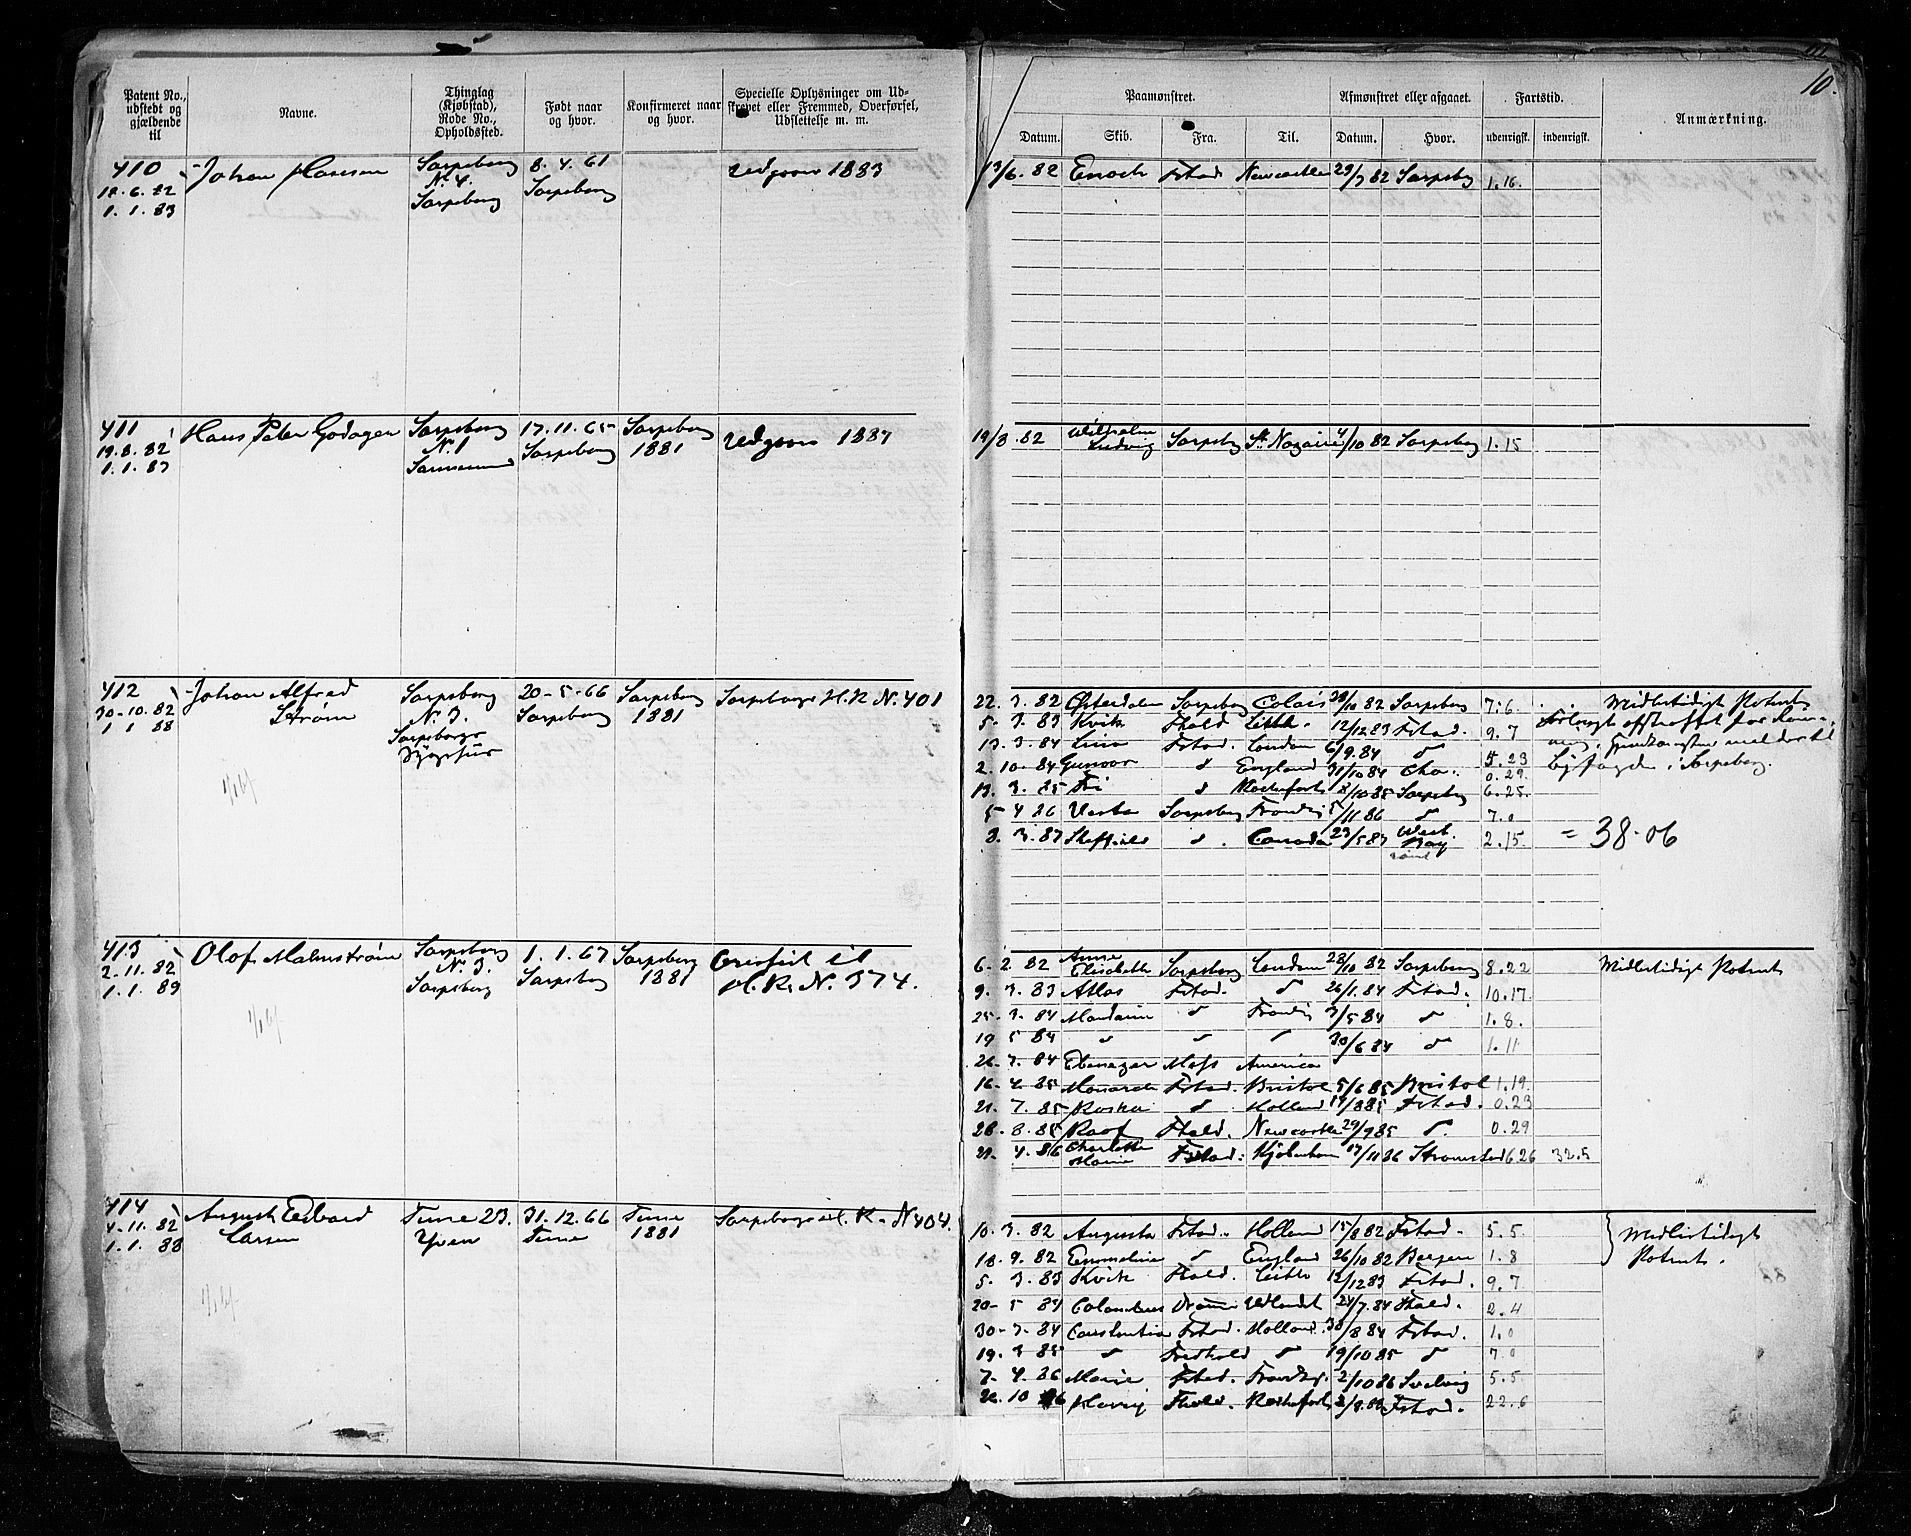 10.
Patent No., udstedt og gjældende til
Navne.
Thinglag (Kjøbstad), Rode No., Opholdssted.
Født naar og hvor.
Konfirmeret naar og hvor.
Specielle Oplysninger om Udskrevet eller Fremmed, Overførsel, Udslettelse m. m.
Paamønstret.
Datum. Skib. Fra. Til.
Afmønstret eller afgaaet.
Datum. Hvor.
Fartstid.
udenrigsk. indenrigsk.
Anmærkning.
410 Johan Hansen Sarpsborg 8. 4. 61 Udgaar 1883
N. 4. Sarpsborg
1. 1. 83 Sarpsborg
13/6. 82 Enoch Fstad Newcastle 29/7 82 Sarpsbg 1. 16.
411 Hans Peter Godager Sarpsborg 17. 11. 65 Sarpsborg Udgaar 1887
19. 8. 82 N. 1 Sarpsborg 1881
1. 1. 87 Sannesund
19/8. 82 Wilhelm Ludvig Sarpsbg St. Nazaire 4/10 82 Sarpsborg 1. 15
412 Johan Alfred Sarpsborg 20-5-66 Sarpsborg Sarpsborgs H.R N. 401
30-10. 82 Strøm N. 3. Sarpsborg 1881
1. 1 88 Sarpsborgs
Sygehus
22. 3. 82 Østerdalen Sarpsborg Calais 28/10 82 Sarpsborg 7. 6. Midlertidigt Patent
5. 3. 83 Kvik Fhald Leith. 12/12 83 Fstad. 9. 7
13. 3. 84 Lina Fstad. London 6/9. 84
2. 10. 84 Gunvor England 31/10 84 0. 29. i Sarpsborg.
13. 3. 85 Fri Rochefort 8/10 85 Sarpsbg 6. 25.
5 4 86 Vesta Sarpsborg Frankrig 5/11 86 7. 0
8. 3. 87 Sheffield Canada 23/5 87 West Bay 2. 15 = 38-06
413 Olof Malmstrøm Sarpsborg 1. 1. 67 Sarpsborg Overført til
2-11. 82 N. 3. Sarpsborg 1881 H. R. N. 374.
1. 1. 89 Sarpsborg
6. 2 82 Anne Elisabeth Sarpsborg London 28/10 82 Sarpsborg 8. 22 Midlertidigt Patent
9. 3. 83 Atlas Fstad. 26/1. 84 Fstad. 10. 17.
25. 3. 84 Frankrig 3/5 84 1. 8.
19 5 84 30/6 84 1. 11
26. 7. 84 Ebenezer Moss America
16. 4. 85 Monarch Fstad. Bristol 5/6 85 Bristol 1. 19.
21. 7. 85 Holland 19/8 85 Fstad. 0. 23
28. 8. 85 Fhald. Newcastle 29/9 85 0. 29
21. 4. 86 Charlotte Marie Fstad. Kjøbenhavn 17/11 86 Strømstad 6 26 32. 5
414 August Edvard Tune 23. 31. 12. 66 Tune Sarpsborgs H. R. N 404.
4-11. 82 Larsen Yven Tune 1881
1. 1. 88
10. 3. 82 Augusta Fstad. Holland 15/8 82 Fstad. 5. 5 Midlertidigt
18. 9. 82 Emmelina England 26/10 82 Bergen 1. 8 Patent.
5. 3. 83 Kvik Fhald. Leith 12/12 83 Fstad. 9. 7
20-5 84 Columbus Drammen Udlandet 24/7. 84 Fhald. 2. 4
30-7-84 Constantia Fstad. Holland. 30/8 84 Fstad. 1. 0
19. 3 85 Fredhald 19/10 85 7. 0
7. 4. 86 Marie Fstad. Frankrig. 2/10 86 Svelvig 5. 5
26. 10 86 Harry Fhald. Rochefort 2/9. 88 Fstad. 22. 6